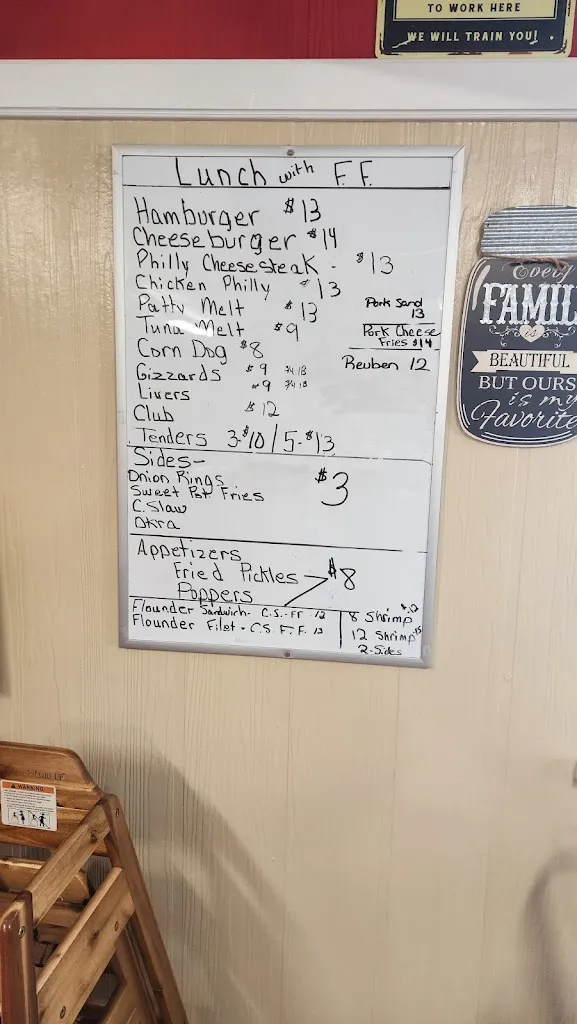 TO WORK HERE
WE WILL TRAIN YOU!
Lunch with F.F.
Hamburger $13
Cheeseburger $14
Philly Cheesesteak - $13
Chicken Philly $13
Patty Melt $13
Tuna Melt $9
Corn Dog $8
Gizzards $9 3/4 lB
Livers $9 3/4 lB
Club $12
Tenders 3-$10 / 5-$13
Pork Sand
13
Pork Cheese
Fries $14
Reuben 12
Sides-
Onion Rings $3
Sweet Pot Fries
C. Slaw
Okra
Appetizers
Fried Pickles $8
Poppers
Flounder Sandwich - C.S.-FF 12
Flounder Filet - C.S. F.F. 13
8 Shrimp $12
12 Shrimp $15
2-Sides
Every
FAMIL
is
BEAUTIFUL
BUT OURS
is my
Favorite
WARNING